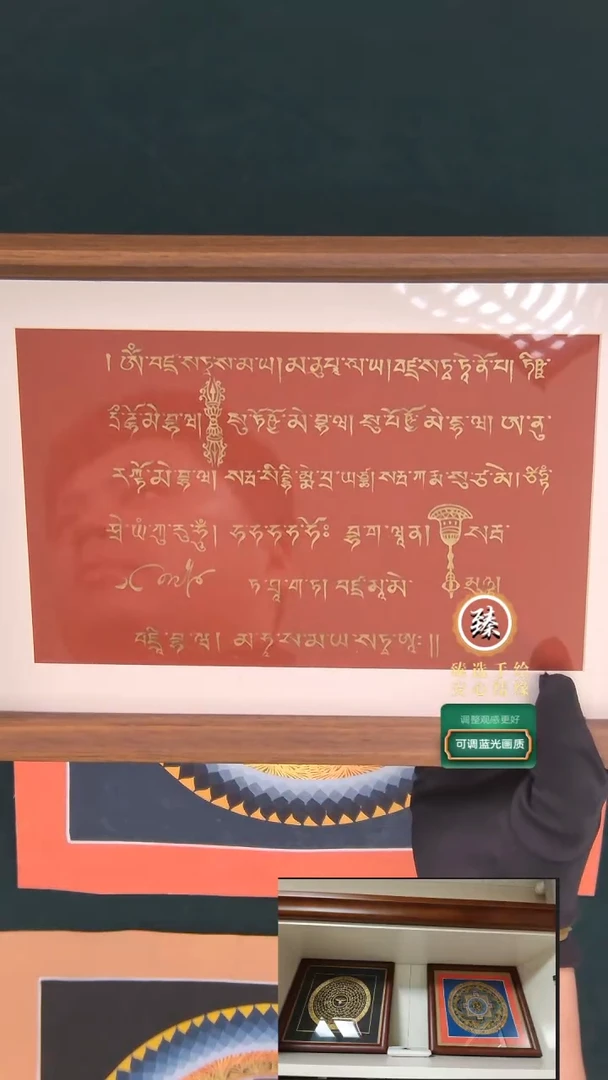 ། ཨོཾ་བཛྲ་སཏྭ་ས་མ་ཡ། མ་ནུ་པཱ་ལ་ཡ། བཛྲ་ས་ཏྭ་ཏྭེ་ནོ་པ། ཏིཥྛ་
དྲྀ་ཌྷོ་མེ་བྷ་ཝ། སུ་ཏོ་ཥྱོ་མེ་བྷ་ཝ། སུ་པོ་ཥྱོ་མེ་བྷ་ཝ། ཨ་ནུ་
རཀྟོ་མེ་བྷ་ཝ། སརྦ་སིདྡྷི་མྨེ་པྲ་ཡ་ཙྪ། སརྦ་ཀརྨ་སུ་ཙ་མེ། ཙིཏྟཾ་
ཤྲེ་ཡཾ་ཀུ་རུ་ཧཱུྃ། ཧ་ཧ་ཧ་ཧ་ཧོཿ བྷ་ག་ཝཱན། སརྦ་
ཏ་ཐཱ་ག་ཏ། བཛྲ་མཱ་མེ་ མུཉྩ།
བཛྲཱི་བྷ་ཝ། མ་ཧཱ་ས་མ་ཡ་སཏྭ་ཨཱཿ །།
臻
臻选手绘
调整观感更好
可调蓝光画质